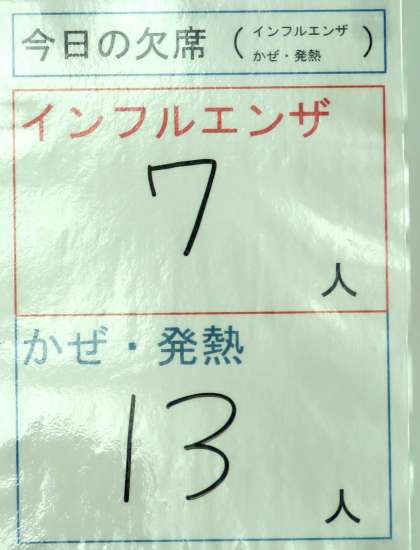 今日の欠席（インフルエンザ
かぜ・発熱）
インフルエンザ
7
人
かぜ・発熱
13
人